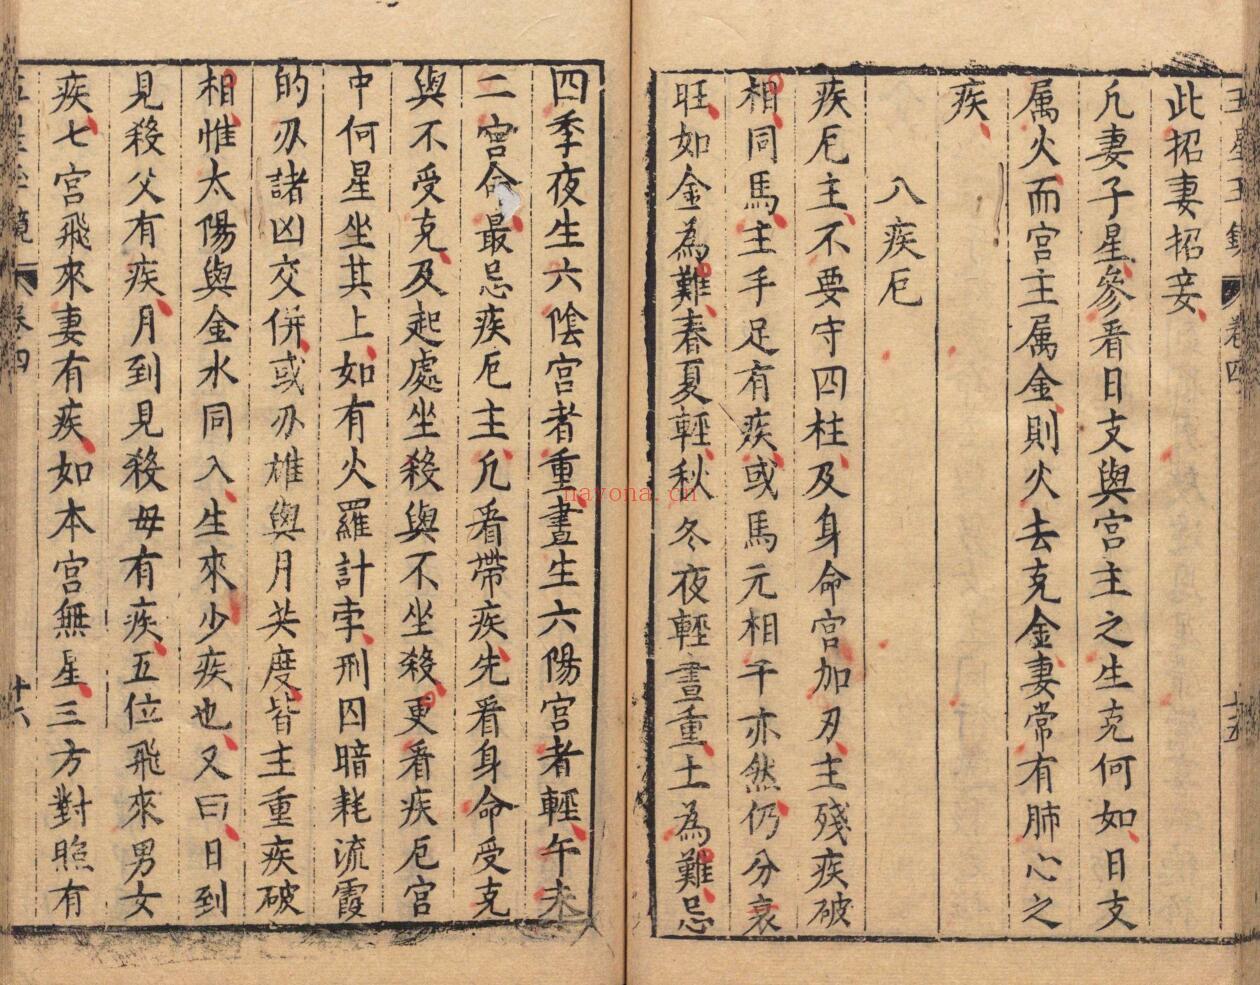 此招妻招妾
凢妻子星參看日支與宫主之生克何如日支
属火而宫主属金則火去克金妻常有肺心之
疾
八疾厄
疾厄主不要守四柱及身命宫加刃主殘疾破
相同馬主手足有疾或馬元相干亦然仍分衰
旺如金為難春夏輕秋冬夜輕晝重土為難忌
四季夜生六陰宫者重晝生六陽宫者輕午未
二宫命最忌疾厄主凢看帶疾先看身命受克
與不受克及起處坐殺與不坐殺更看疾厄宫
中何星坐其上如有火羅計孛刑囚暗耗流霞
的刃諸凶交併或刃雄與月共度皆主重疾破
相惟太陽與金水同入生來少疾也又曰日到
見殺父有疾月到見殺母有疾五位飛來男女
疾七宫飛來妻有疾如本宫無星三方對照有
卷四
十五
卷四
十六
nayona.cn